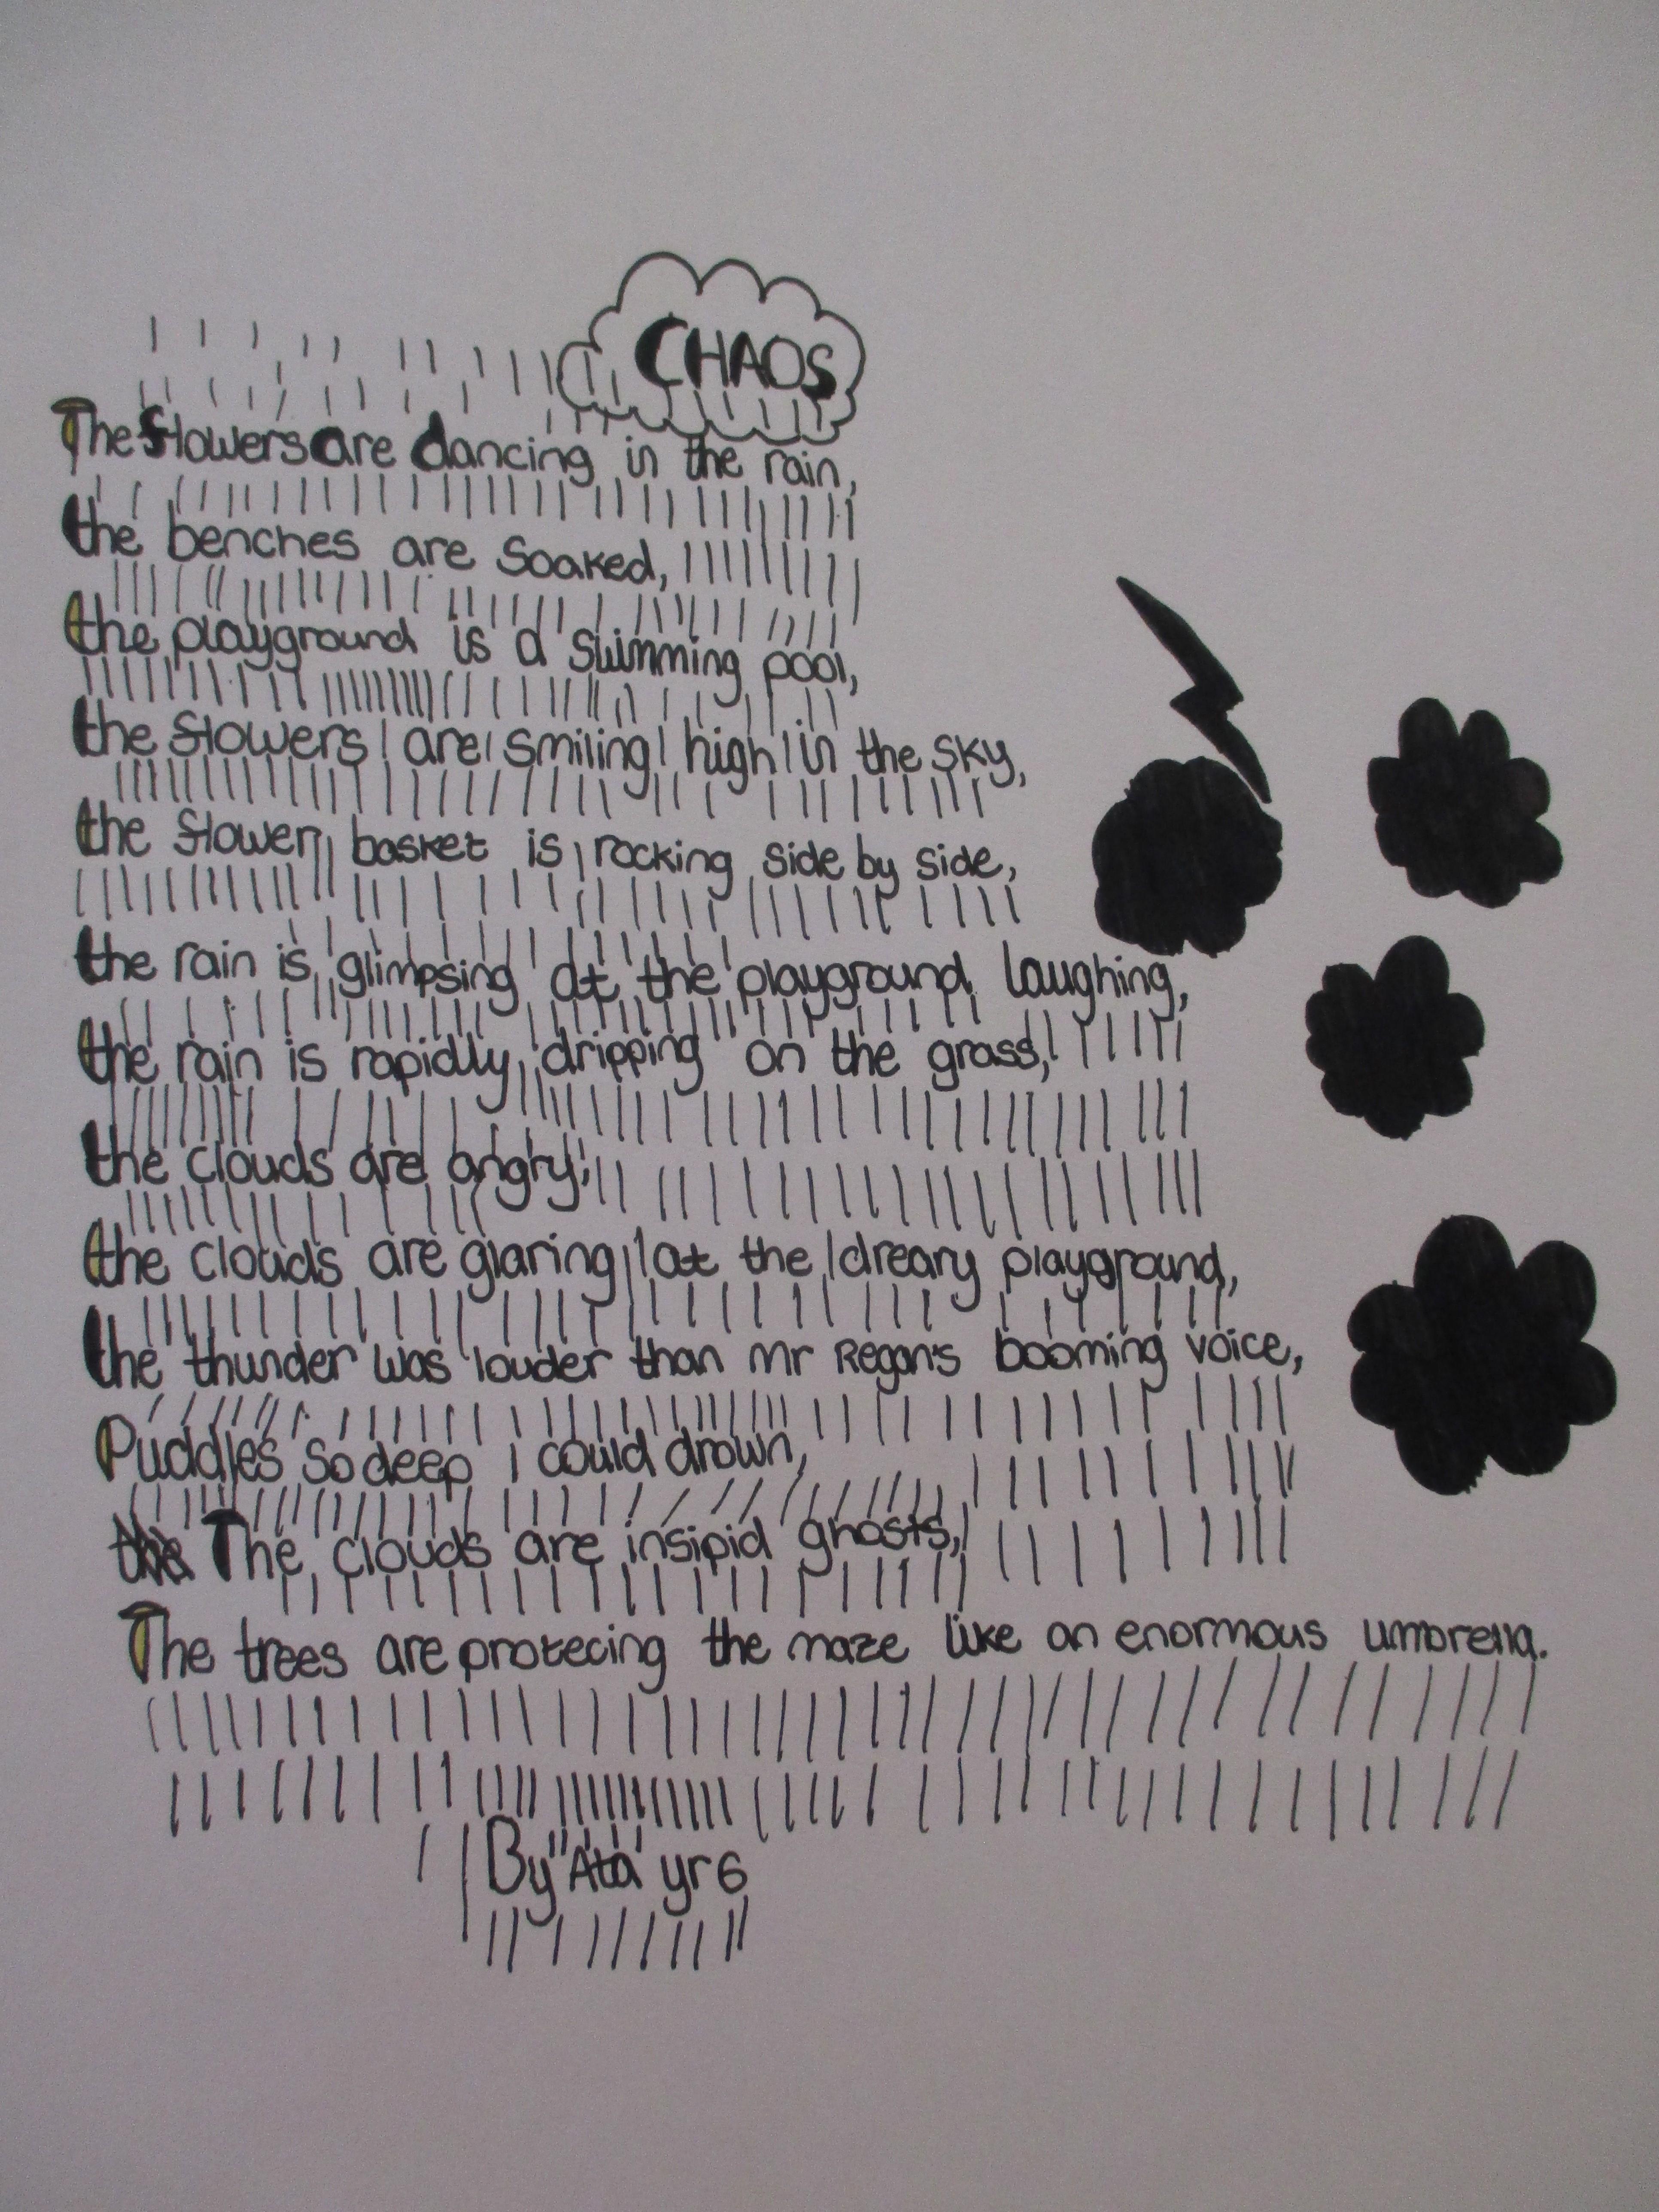 CHAOS
The flowers are dancing in the rain,
the benches are soaked,
the playground is a swimming pool,
the flowers are smiling high in the sky,
the flower basket is rocking side by side,
the rain is glimpsing at the playground laughing,
the rain is rapidly dripping on the grass,
the clouds are angry,
the clouds are glaring at the dreary playground,
the thunder was louder than Mr Regan's booming voice,
Puddles so deep i could drown,
the The clouds are insipid ghosts,
The trees are protecing the maze like an enormous umbrella.
By "Ata" yr 6